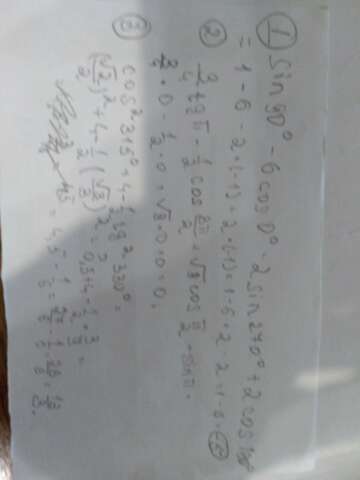 ① sin 90° - 6 cos 0° - 2 sin 270° + 2 cos 180°
= 1 - 6 - 2 · (-1) + 2 · (-1) = 1 - 6 + 2 - 2 = 1 - 6 =
② tg π - 1/2 cos 3π/2 + √3 cos π/2 · sin π
· 0 - 1/2 · 0 + √3 · 0 · 0 = 0,
③ cos² 315° + 4 - 1/2 tg² 330° =
(√2/2)² + 4 - 1/2 (√3/3)² = 0,5 + 4 - 1/2 · 3/9 =
= 4,5 - 1/6 =